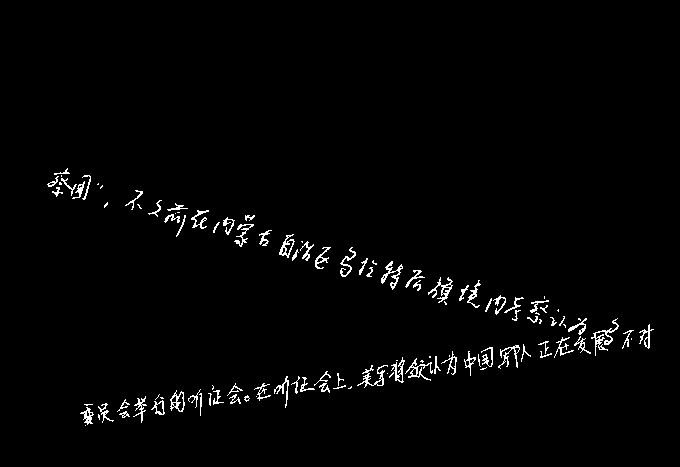 蔡国"，不久前在内蒙古自治区乌拉特后旗境内等蔡认为
委员会举行的听证会。在听证会上，美军将领认为中国军人正在发展不对